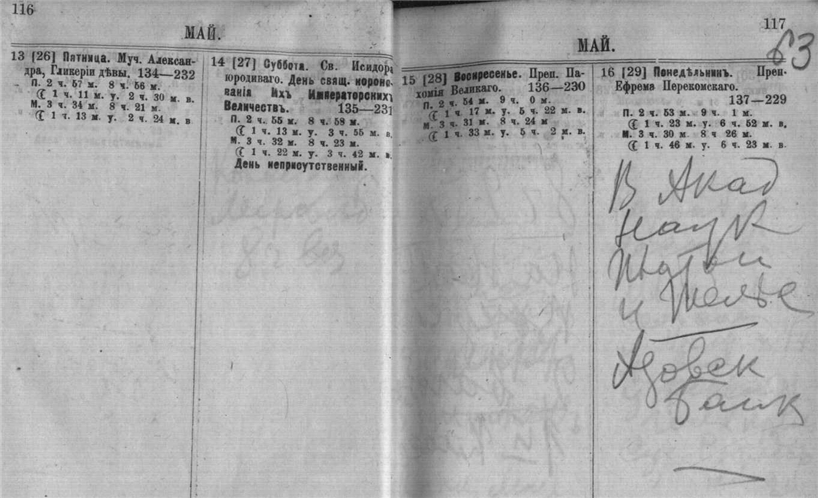 116
МАЙ.
13 [26] Пятница. Муч. Алексан-
дра, Гликеріи дѣвы. 134—232
П. 2 ч. 57 м. 8 ч. 56 м.
☾ 1 ч. 11 м. у. 2 ч. 30 м. в.
М. 3 ч. 34 м. 8 ч. 21 м.
☾ 1 ч. 13 м. у. 2 ч. 24 м. в
14 [27] Суббота. Св. Исидора
юродиваго. День свящ. короно-
ванія Ихъ Императорскихъ
Величествъ. 135—231
П. 2 ч. 55 м. 8 ч. 58 м.
☾ 1 ч. 13 м. у. 3 ч. 55 м. в.
М. 3 ч. 32 м. 8 ч. 23 м.
☾ 1 ч. 22 м. у. 3 ч. 42 м. в.
День неприсутственный.
117
63
МАЙ.
15 [28] Воскресенье. Преп. Па-
хомія Великаго. 136—230
П. 2 ч. 54 м. 9 ч. 0 м.
☾ 1 ч. 17 м. у. 5 ч. 22 м. в.
М. 3 ч. 31 м. 8 ч. 24 м
☾ 1 ч. 33 м. у. 5 ч. 2 м. в.
16 [29] Понедѣльникъ. Преп.
Ефрема Перекомскаго.
137—229
П. 2 ч. 53 м. 9 ч. 1 м.
☾ 1 ч. 23 м. у. 6 ч. 52 м. в.
М. 3 ч. 30 м. 8 ч. 26 м.
☾ 1 ч. 46 м. у. 6 ч. 23 м. в
В Акад
Наук
и
Азовск
банк